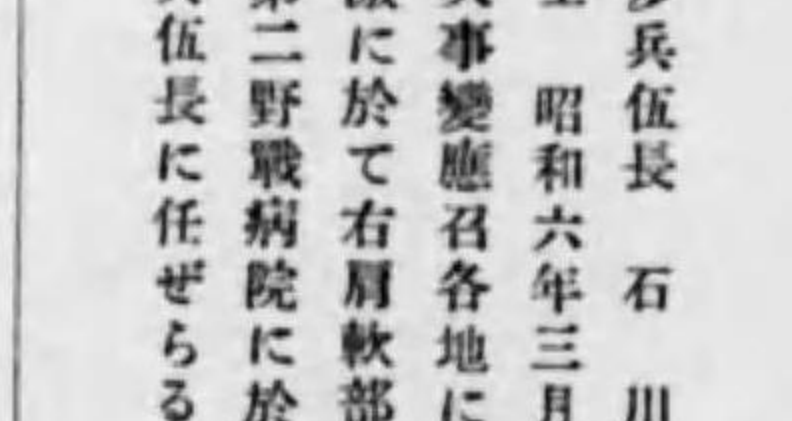 兵伍長　石川
昭和六年三月
事變應召各地に
に於て右肩軟部
第二野戰病院に於
兵伍長に任ぜらる